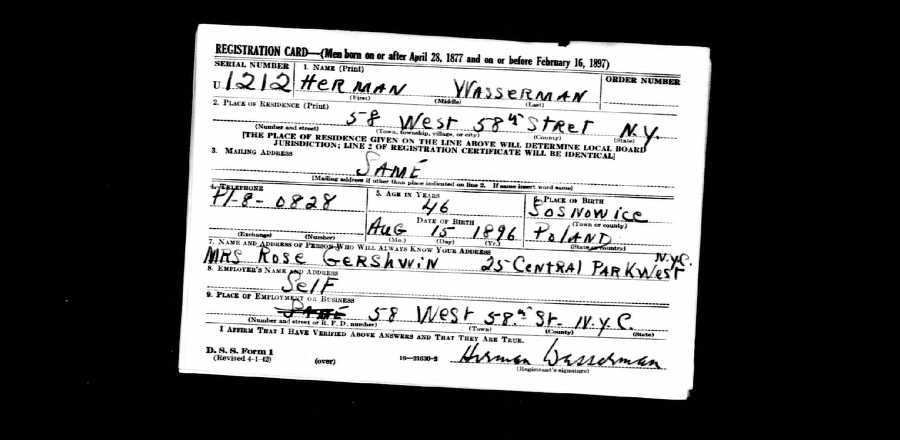 REGISTRATION CARD—(Men born on or after April 28, 1877 and on or before February 16, 1897)
SERIAL NUMBER 1. NAME (Print) ORDER NUMBER
U 1212 HERMAN WASSERMAN
(First) (Middle) (Last)
2. PLACE OF RESIDENCE (Print)
58 West 58th STRET N.Y.
(Number and street) (Town, township, village, or city) (County) (State)
[THE PLACE OF RESIDENCE GIVEN ON THE LINE ABOVE WILL DETERMINE LOCAL BOARD
JURISDICTION; LINE 2 OF REGISTRATION CERTIFICATE WILL BE IDENTICAL]
3. MAILING ADDRESS
SAME
[Mailing address if other than place indicated on line 2. If same insert word same]
4. TELEPHONE 5. AGE IN YEARS 6. PLACE OF BIRTH
Pl-8-0828 46 SOSNOWICE
DATE OF BIRTH (Town or county)
AUG 15 1896 POLAND
(Exchange) (Number) (Mo.) (Day) (Yr.) (State or country)
7. NAME AND ADDRESS OF PERSON WHO WILL ALWAYS KNOW YOUR ADDRESS
MRS ROSE GERSHWIN 25 CENTRAL PARK WEST N.Y.C.
8. EMPLOYER'S NAME AND ADDRESS
SelF
9. PLACE OF EMPLOYMENT OR BUSINESS
SAME 58 West 58th St. N.Y.C.
(Number and street or R. F. D. number) (Town) (County) (State)
I AFFIRM THAT I HAVE VERIFIED ABOVE ANSWERS AND THAT THEY ARE TRUE.
D. S. S. Form 1
(Revised 4-1-42) (over) 16—21630-2 Herman Wasserman
(Registrant's signature)